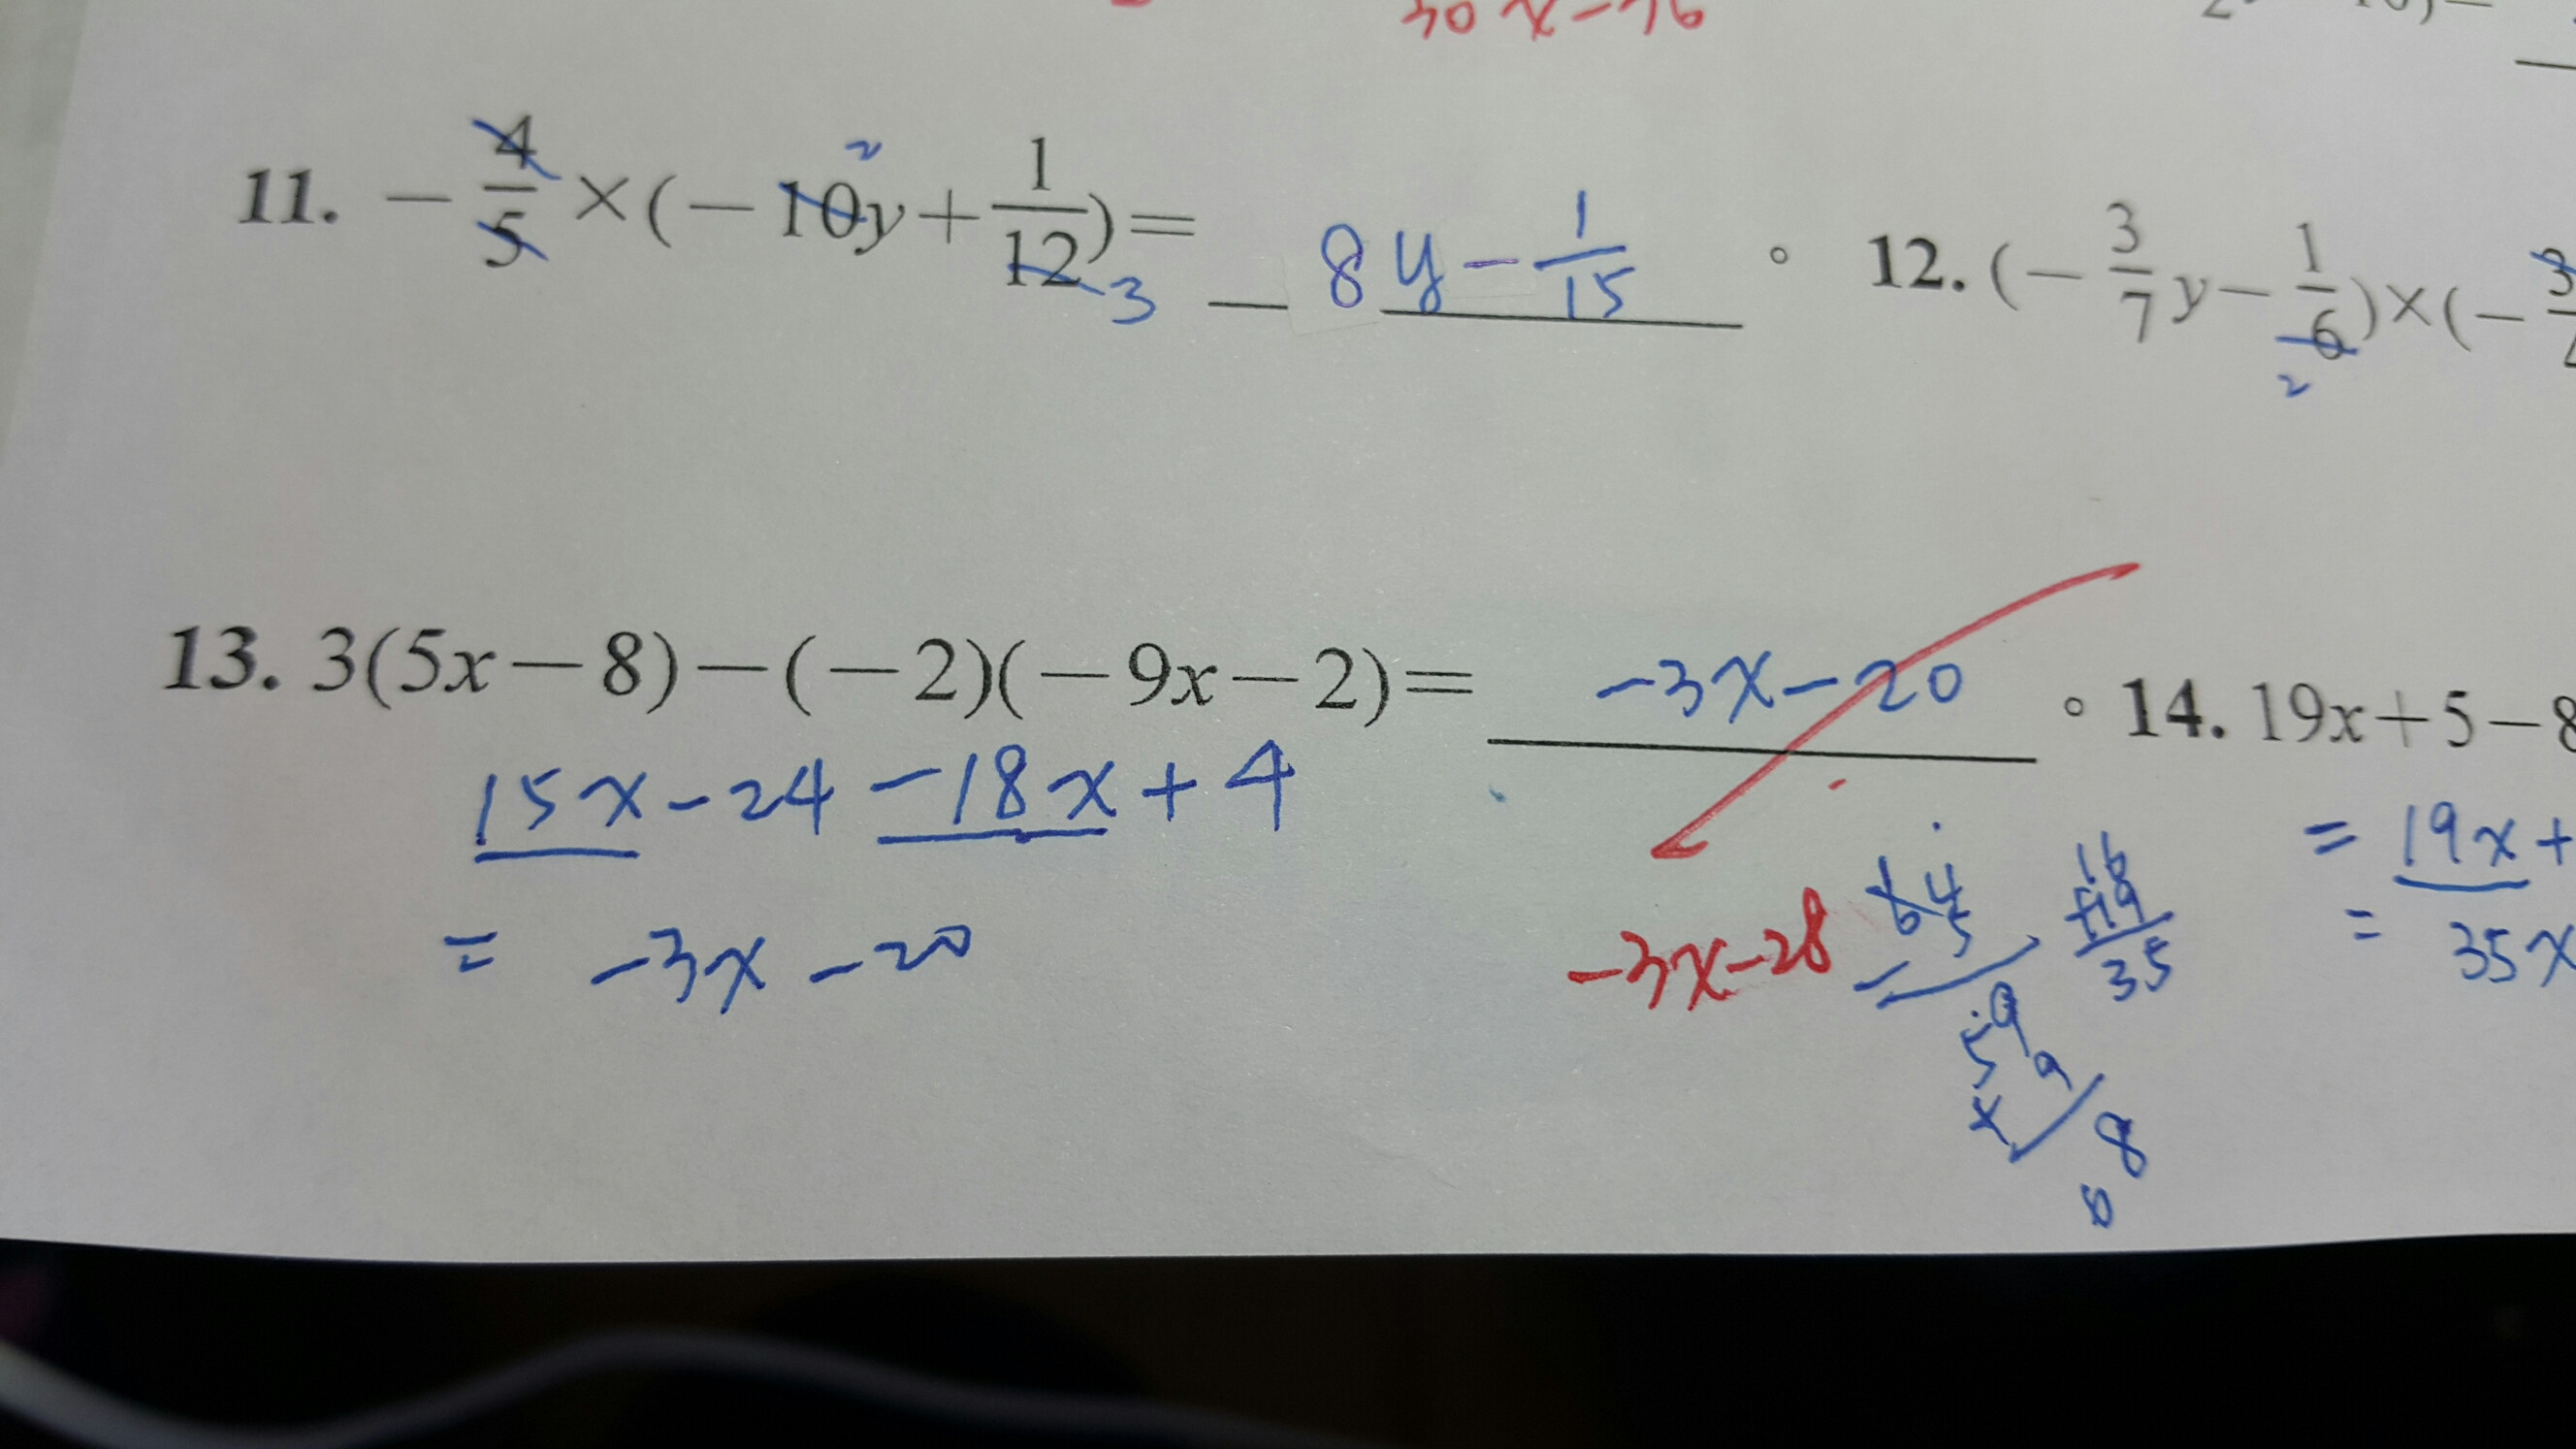 30x-76
11. -4/5×(-10y+1/12)= 8y-1/15 。 12. (-3/7y-1/6)×(-3
2
3
2
13. 3(5x-8)-(-2)(-9x-2)= -3x-20 。 14. 19x+5-8
15x-24-18x+4 = 19x+
= -3x-20 -3x-28 = 35x
16
+19
35